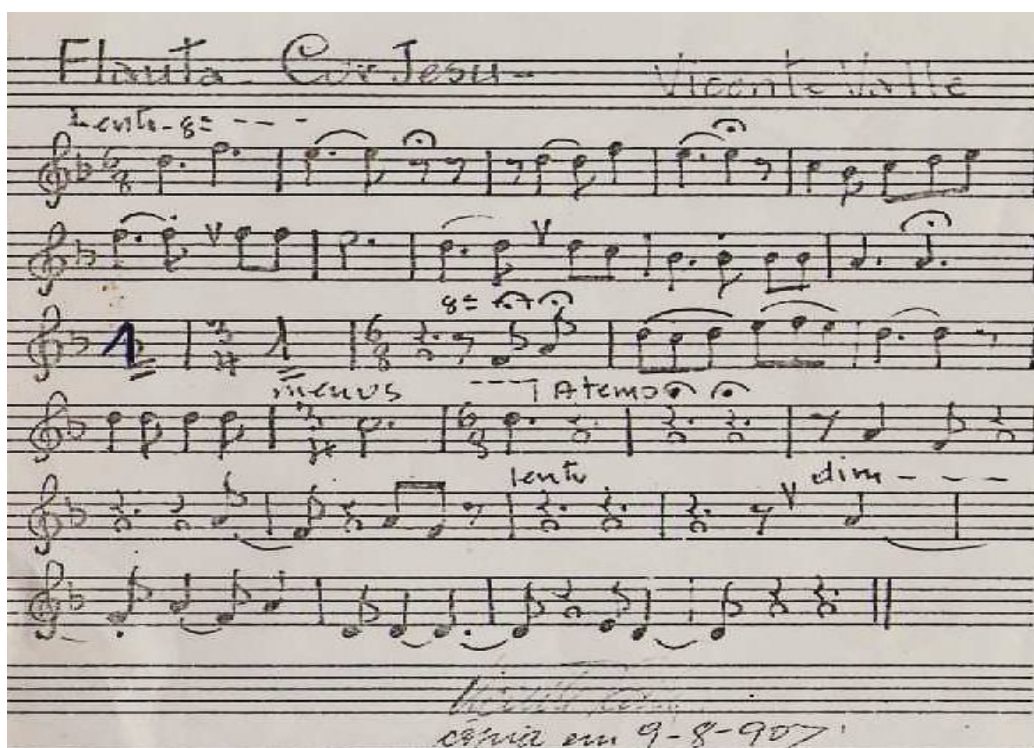 Flauta - Cor Jesu - Vicente Valle
Lento - 8ª - - - -
6/8
1
3/4 1 6/8 8ª
menos - - - - A tempo
3/4 6/8
lento dim - - -
cópia em 9-8-907